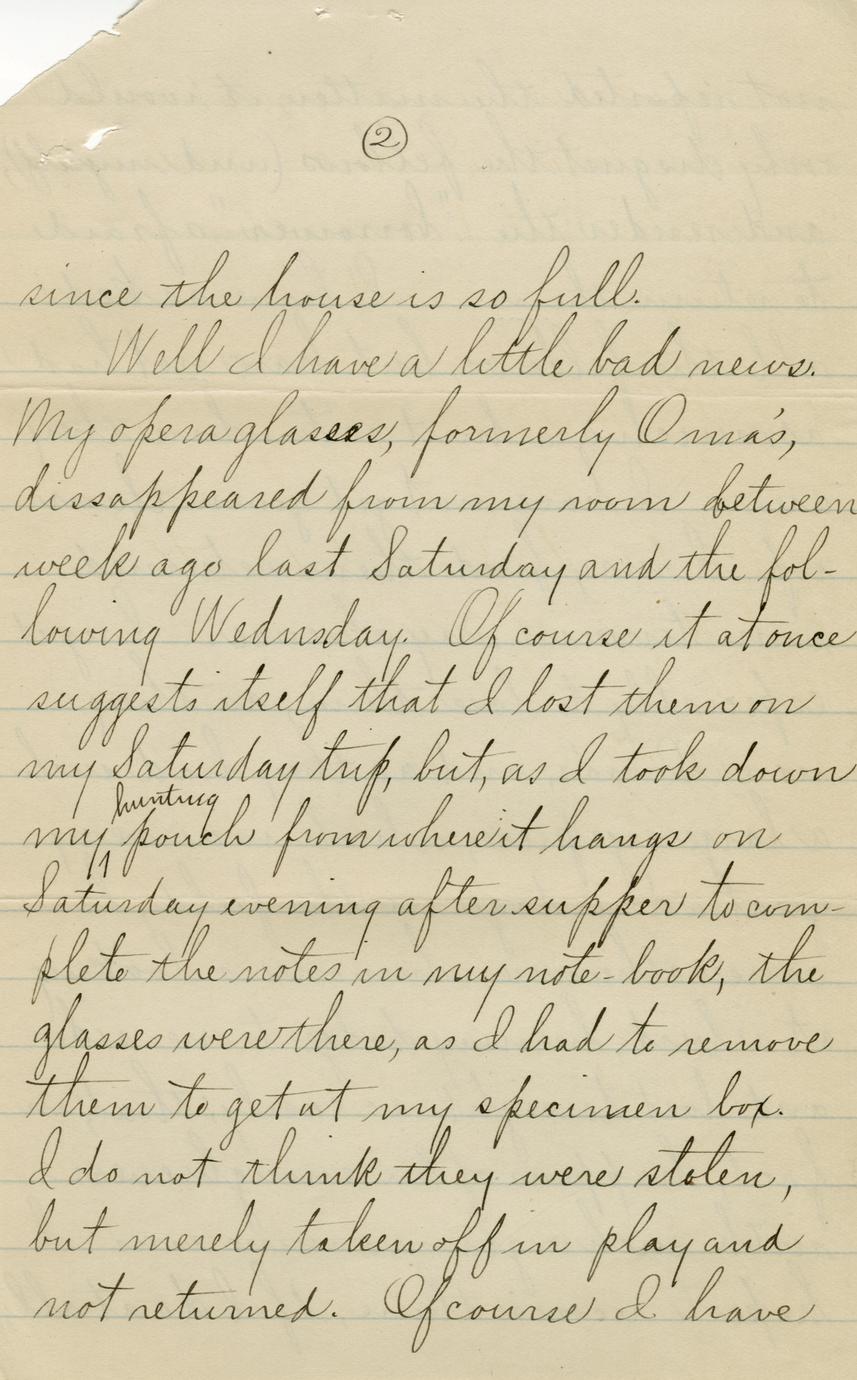 2
since the house is so full.
Well I have a little bad news.
My opera glasses, formerly Oma's,
dissappeared from my room between
week ago last Saturday and the fol-
lowing Wednsday. Of course it at once
suggests itself that I lost them on
my Saturday trip, but, as I took down
hunting
my pouch from where it hangs on
Saturday evening after supper to com-
plete the notes in my note-book, the
glasses were there, as I had to remove
them to get at my specimen box.
I do not think they were stolen,
but merely taken off in play and
not returned. Of course I have